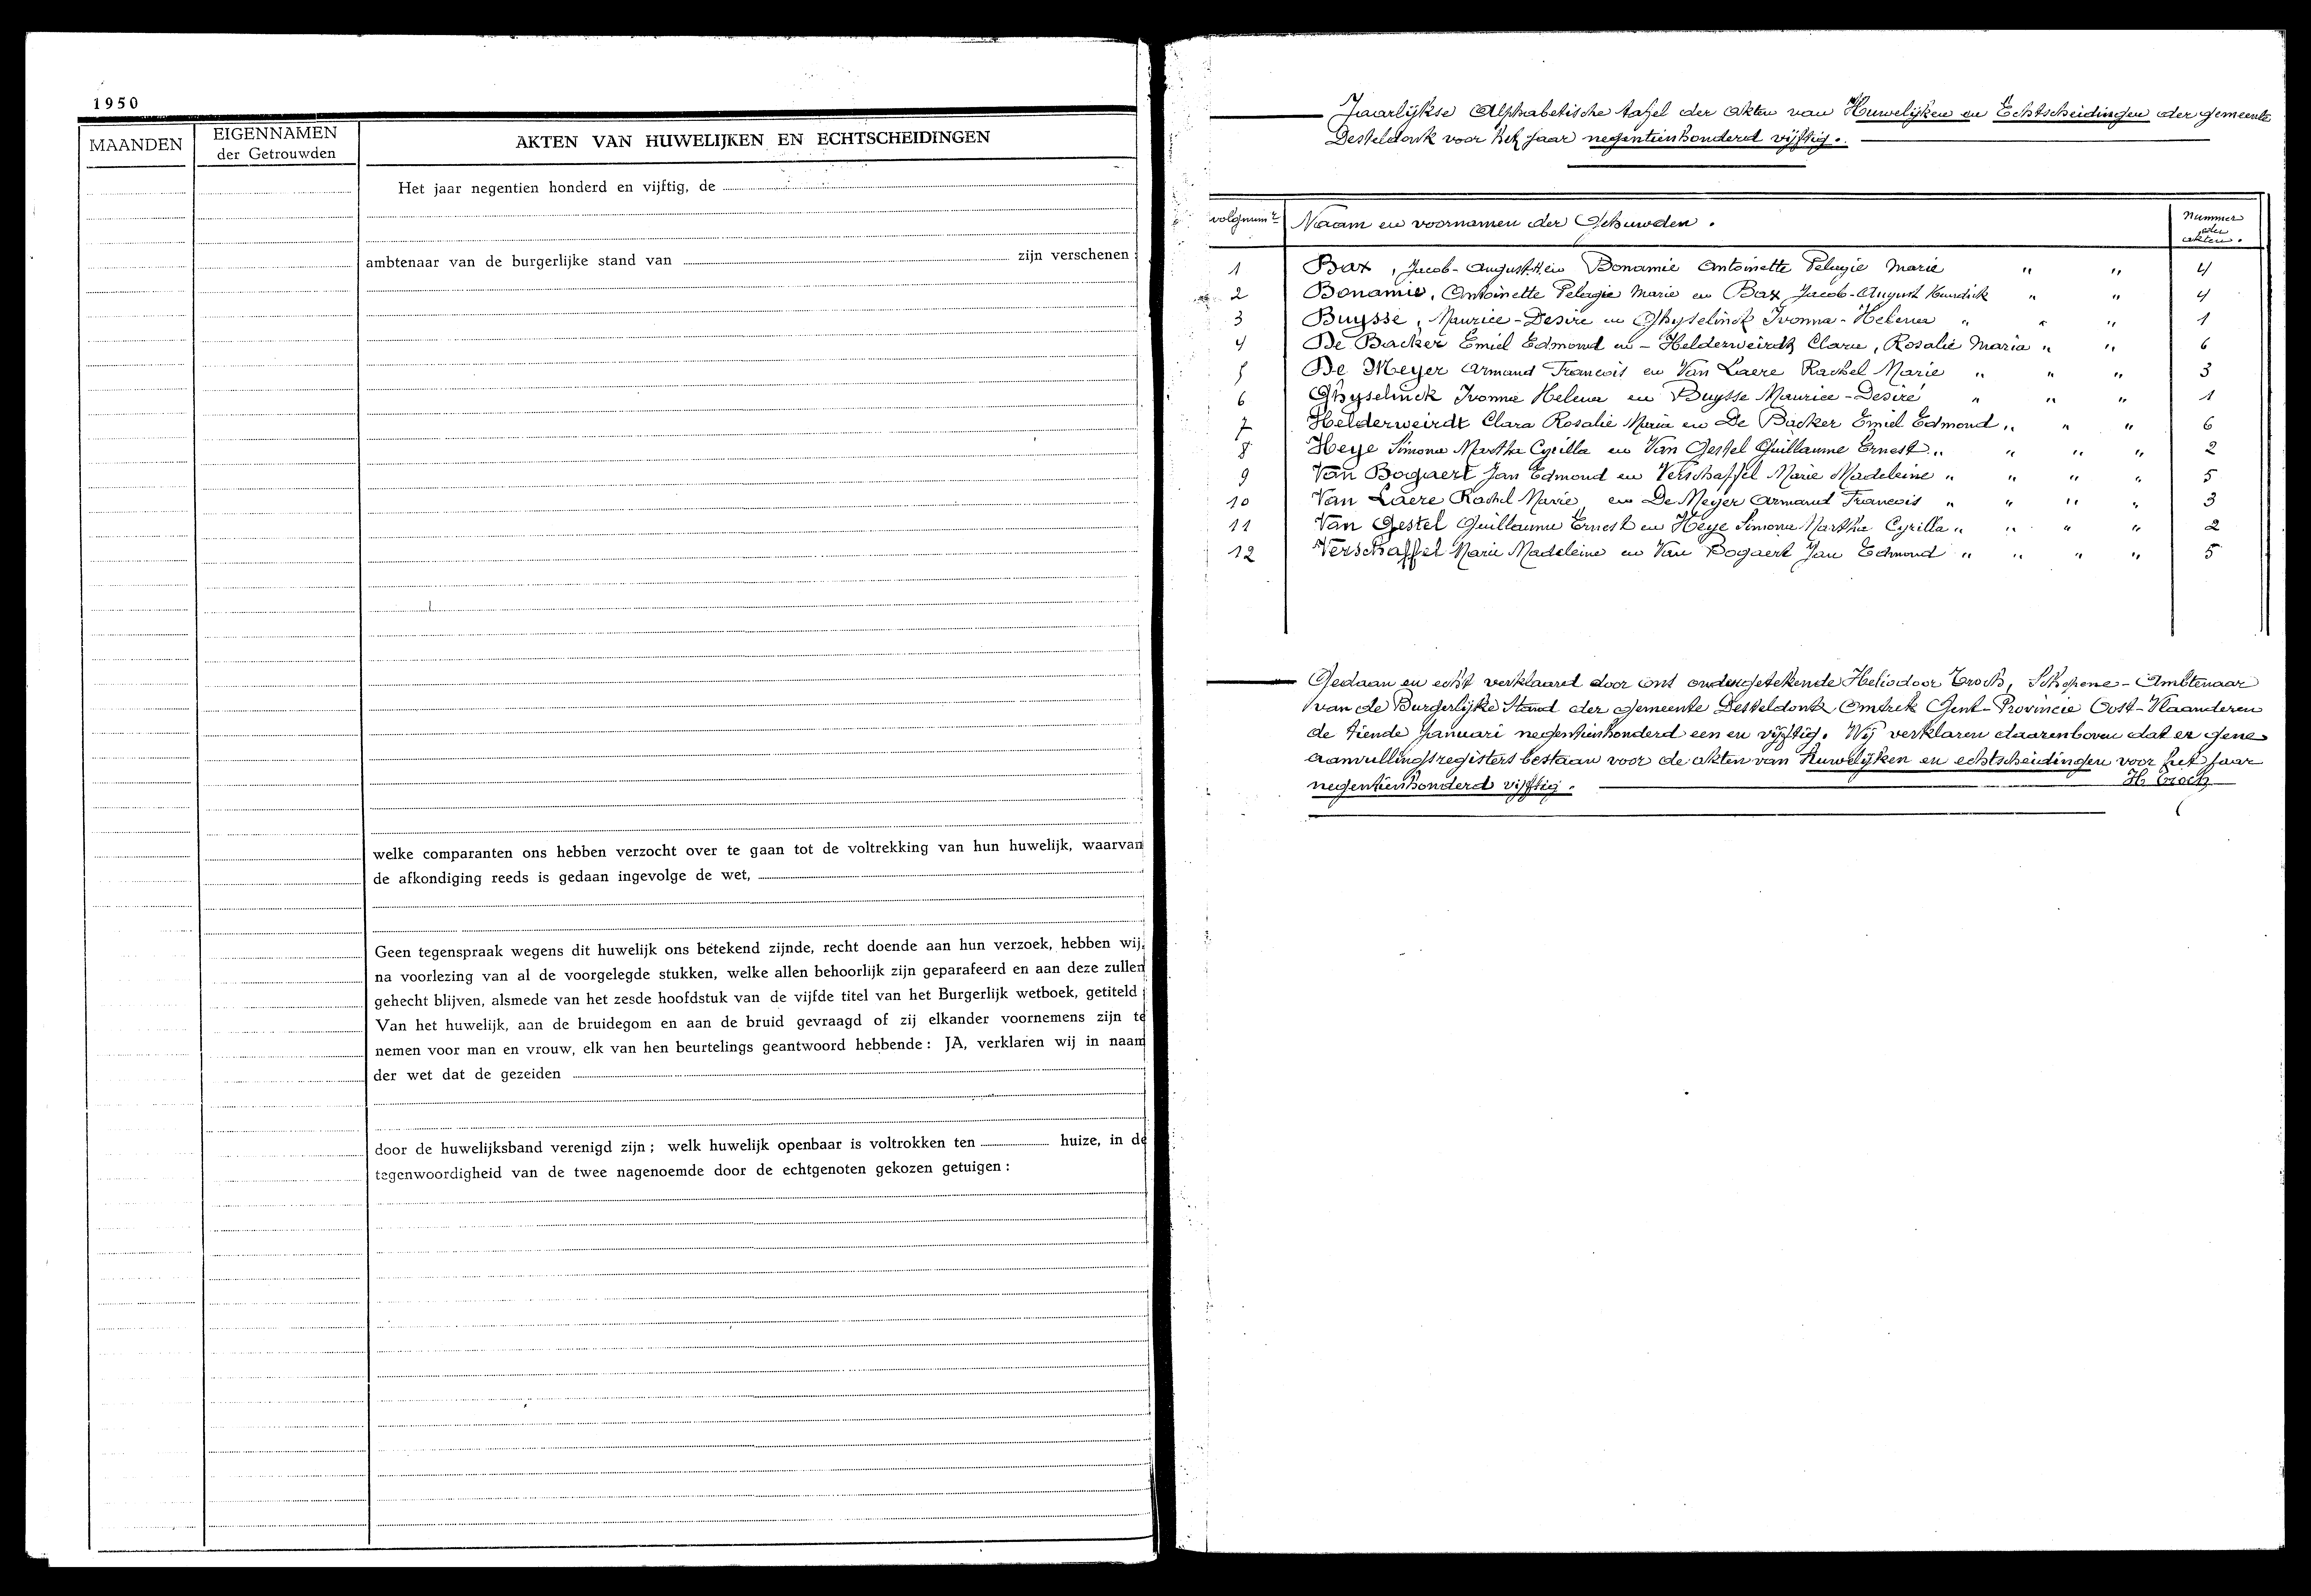 1950
MAANDEN
EIGENNAMEN
der Getrouwden
AKTEN VAN HUWELIJKEN EN ECHTSCHEIDINGEN
Het jaar negentien honderd en vijftig, de
ambtenaar van de burgerlijke stand van zijn verschenen :
welke comparanten ons hebben verzocht over te gaan tot de voltrekking van hun huwelijk, waarvan
de afkondiging reeds is gedaan ingevolge de wet,
Geen tegenspraak wegens dit huwelijk ons betekend zijnde, recht doende aan hun verzoek, hebben wij,
na voorlezing van al de voorgelegde stukken, welke allen behoorlijk zijn geparafeerd en aan deze zullen
gehecht blijven, alsmede van het zesde hoofdstuk van de vijfde titel van het Burgerlijk wetboek, getiteld :
Van het huwelijk, aan de bruidegom en aan de bruid gevraagd of zij elkander voornemens zijn te
nemen voor man en vrouw, elk van hen beurtelings geantwoord hebbende : JA, verklaren wij in naam
der wet dat de gezeiden
door de huwelijksband verenigd zijn ; welk huwelijk openbaar is voltrokken ten huize, in de
tegenwoordigheid van de twee nagenoemde door de echtgenoten gekozen getuigen :
Jaarlijkse Alphabetische tafel der akten van Huwelijken en Echtscheidingen der gemeente
Desteldonk voor het jaar negentienhonderd vijftig.
volgnumr Naam en voornamen der Gehuwden. Nummer der akten.
1 Bax, Jacob-August.H. en Bonamie Antoinette Pelagie Marie " " 4
2 Bonamie, Antoinette Pelagie Marie en Bax Jacob-August " " 4
3 Buysse, Maurice-Desiré en Ghyselinck Ivonna-Helena " " " 1
4 De Backer Emiel Edmond en - Helderweirdt Clara, Rosalie Maria " " 6
5 De Meyer Armand Francois en Van Laere Rachel Marie " " " 3
6 Ghyselinck Ivonna Helena en Buysse Maurice-Desiré " " " 1
7 Helderweirdt Clara Rosalie Maria en De Backer Emiel Edmond " " " 6
8 Heye Simonna Martha Cyrilla en Van Gestel Guillaume Ernest " " " " 2
9 Van Bogaert Jan Edmond en Verschaffel Marie Madeleine " " " " 5
10 Van Laere Rachel Marie en De Meyer Armand Francois " " " " 3
11 Van Gestel Guillaume Ernest en Heye Simonna Martha Cyrilla " " " " 2
12 Verschaffel Marie Madeleine en Van Bogaert Jan Edmond " " " " 5
Gedaan en echt verklaard door ons ondergetekende Heliodoor Troch, Schepene-Ambtenaar
van de Burgerlijke Stand der gemeente Desteldonk Omtrek Gent-Provincie Oost-Vlaanderen
de tiende Januari negentienhonderd een en vijftig. Wij verklaren daarenboven dat er gene
aanvullingsregisters bestaan voor de akten van huwelijken en echtscheidingen voor het jaar
negentienhonderd vijftig. H Troch